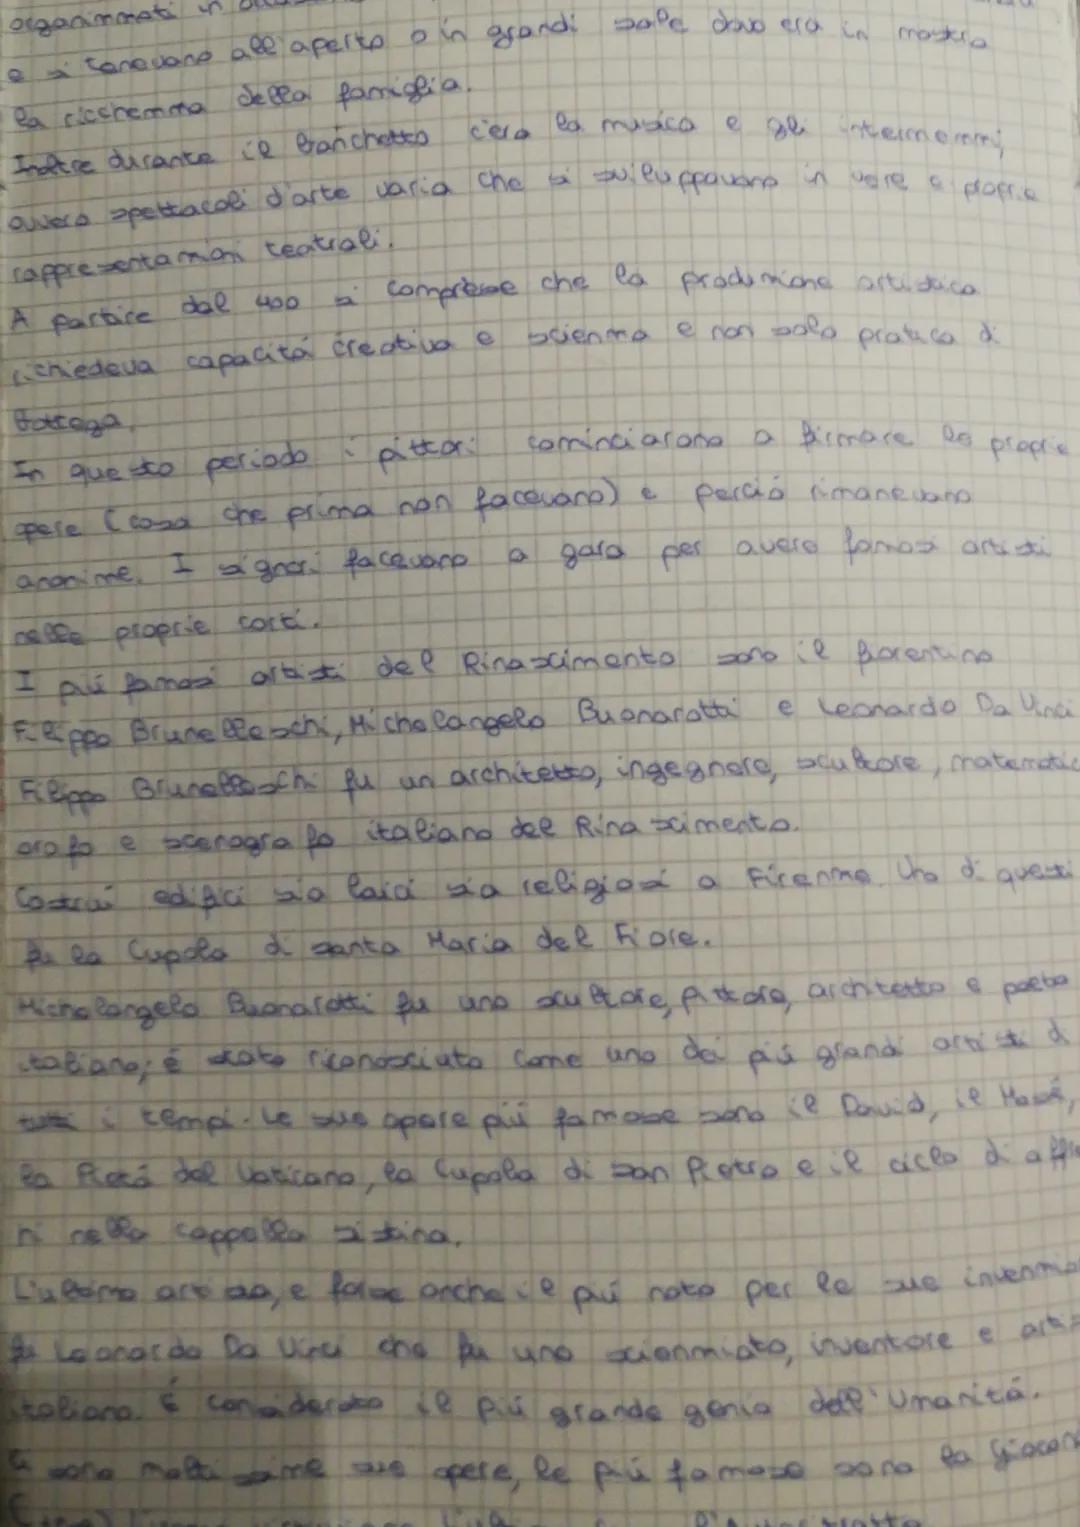 organizzati in
e si tenevano all'aperto o in grandi sale dove era in mostra
la ricchezza della famiglia.
Inoltre durante il banchetto c'era la musica e gli intermezzi,
ovvero spettacoli d'arte varia che si sviluppavano in vere e proprie
rappresentazioni teatrali.
A partire dal 400 si comprese che la produzione artistica
richiedeva capacitá creativa e scienza e non solo pratica di
bottega.
In questo periodo i pittori cominciarono a firmare le proprie
opere (cosa che prima non facevano) e perció rimanevano
anonime. I signori facevano a gara per avere famosi artisti
nelle proprie corti.
I piú famosi artisti del Rinascimento sono il fiorentino
Filippo Brunelleschi, Michelangelo Buonarotti e Leonardo Da Vinci
Filippo Brunelleschi fu un architetto, ingegnere, scultore, matematic
orafo e scenografo italiano del Rinascimento.
Costruí edifici sia laici sia religiosi a Firenze. Uno di questi
fu la Cupola di santa Maria del Fiore.
Michelangelo Buonarotti fu uno scultore, pittore, architetto e poeta
italiano; é stato riconosciuto come uno dei piú grandi artisti di
tutti i tempi. Le sue opere piú famose sono il David, il Mosé,
la Pietá del Vaticano, la Cupola di san Pietro e il ciclo di affre
ni nella cappella sistina.
L'ultimo artista, e forse anche il piú noto per le sue invenzio
fu Leonardo Da Vinci che fu uno scienziato, inventore e artis
italiano. É considerato il piú grande genio dell'Umanitá.
sono moltissime sue opere, le piú famose sono la Giocon